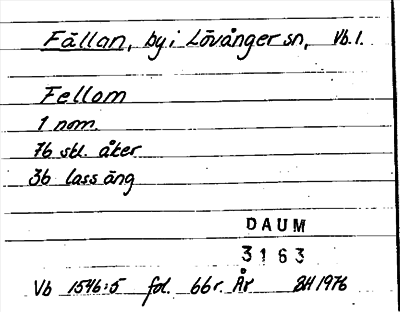 Fällan, by i Lövånger sn, Vb.l.
Fellom
1 nom.
76 skl. åker
36 lass äng
DAUM
3163
Vb 1546:5 fol. 66r. År BH 1976